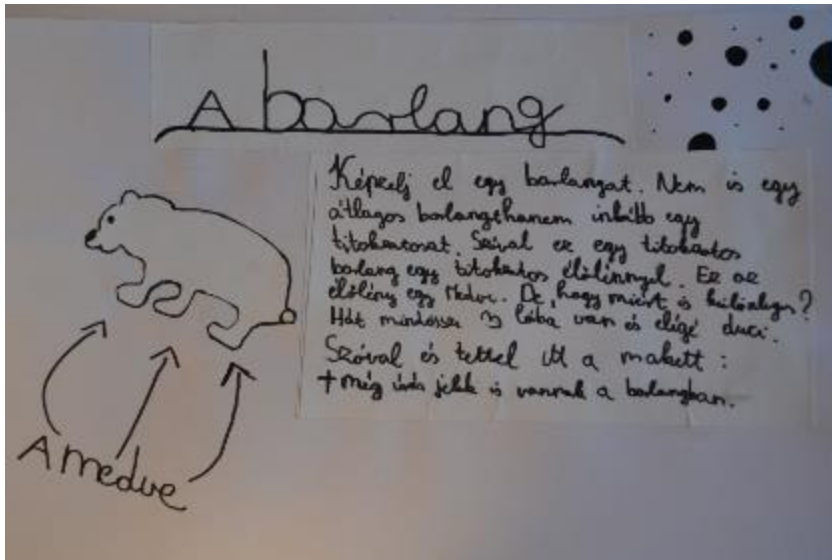 A barlang
Képzelj el egy barlangat. Nem is egy
átlagos barlangthanem inkább egy
titokzatosat. Szóval ez egy titokzatos
barlang egy titokzatos élőlénnyel. Ez az
élőlény egy Medve. De, hogy miért is különleges?
Hát mindössze 3 lába van és eléggé duci.
Szóval és tettel itt a makett :
+még írás jelek is vannak a barlangban.
A medve